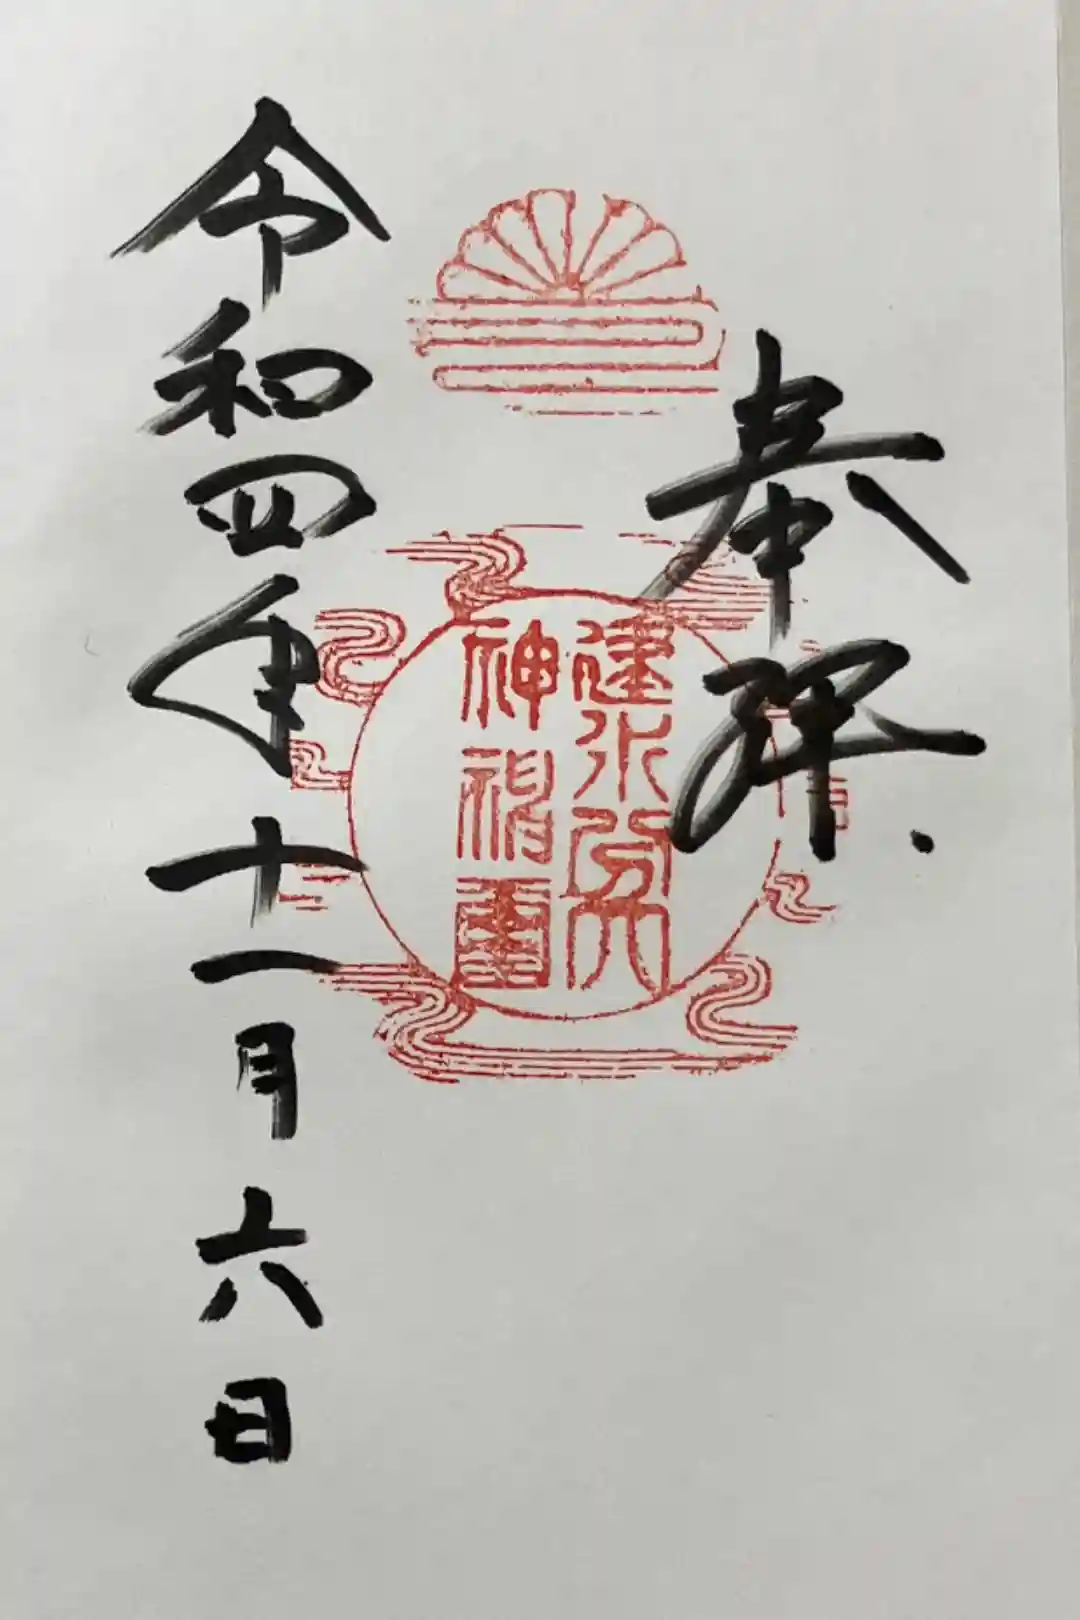 奉拝
建水分
神
令和四年十一月六日